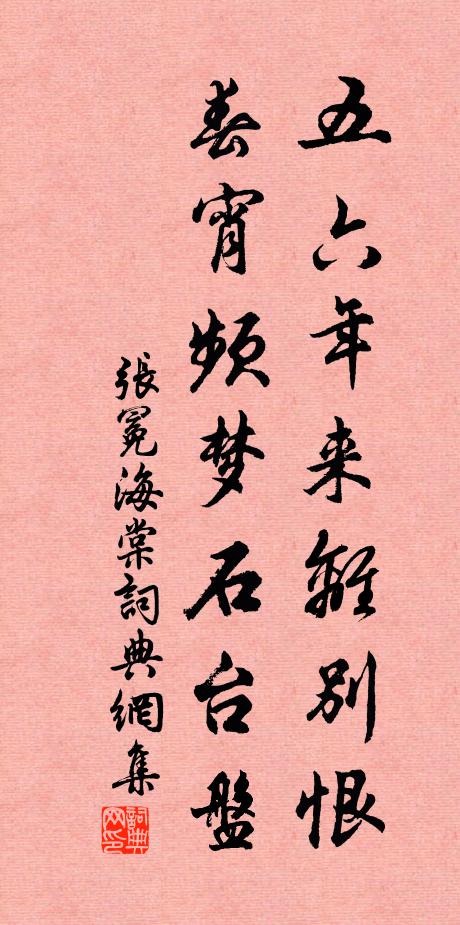 五六年来離别恨
春宵頻梦石台盤
張冕海棠詞典網集
詞典网印